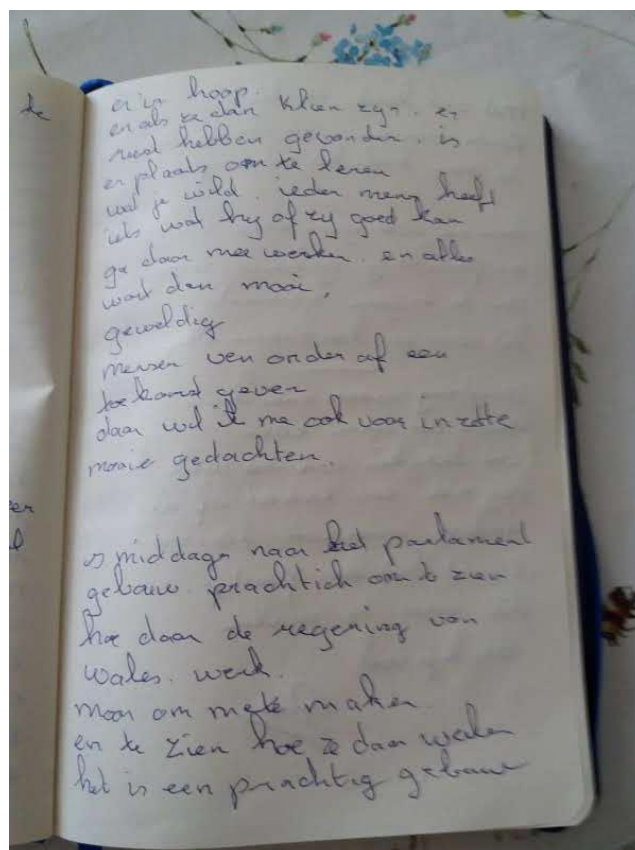 te
er is hoop.
en als ze dan klien zyn. en
rust hebben gevonden. is
er plaats om te leren
wat je wild. ieder mens heeft
iets wat hy of zy goed kan
ga daar mee werken. en alles
word dan mooi,
geweldig
mensen van onder af een
toekomst geven
daar wil ik me ook voor in zette
mooie gedachten.
er
s middags naar het parlament
gebauw. prachtich om te zien
hoe daar de regering van
Wales. werk.
mooi om mete maken
en te zien hoe ze daar werken
het is een prachtig gebauw